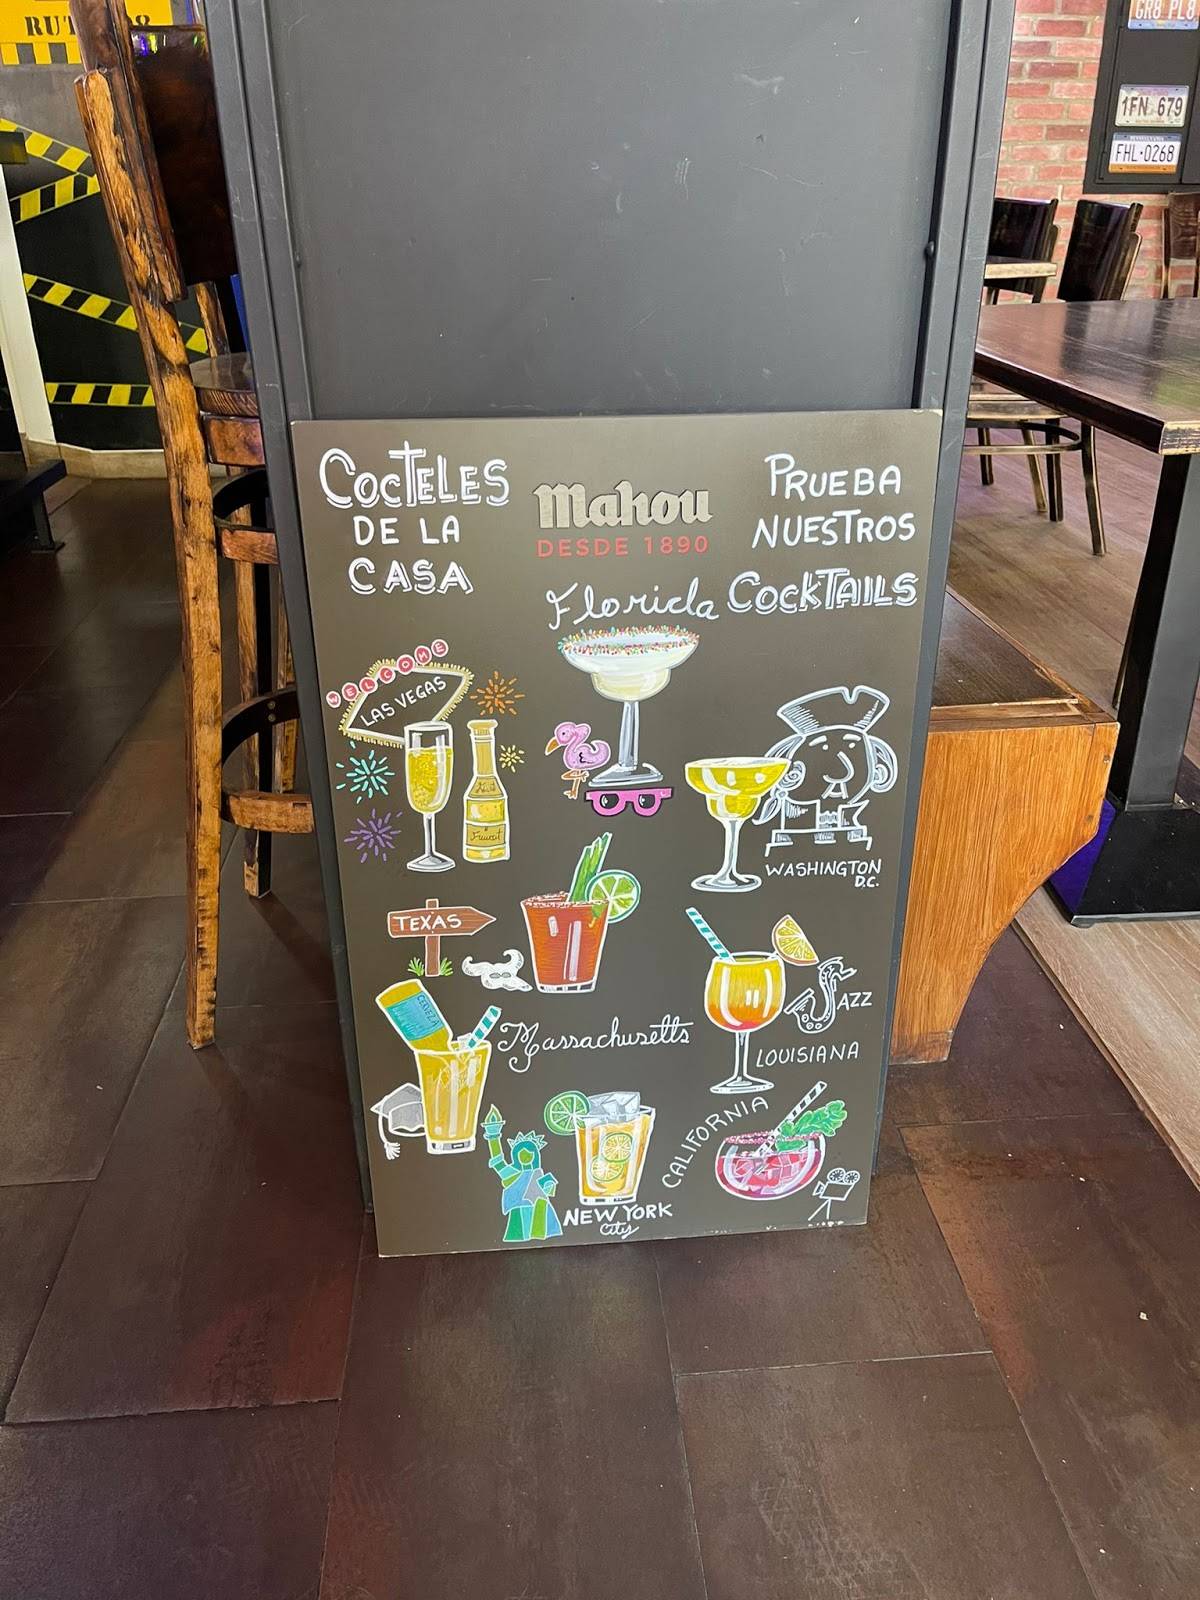 RUT
GR8 PL8
1FN 679
FHL·0268
COCTELES
DE LA
CASA
Mahou
DESDE 1890
PRUEBA
NUESTROS
COCKTAILS
Florida
WELCOME
LAS VEGAS
WASHINGTON
D.C.
TEXAS
CERVEZA
Massachusetts
JAZZ
LOUISIANA
CALIFORNIA
NEW YORK
City